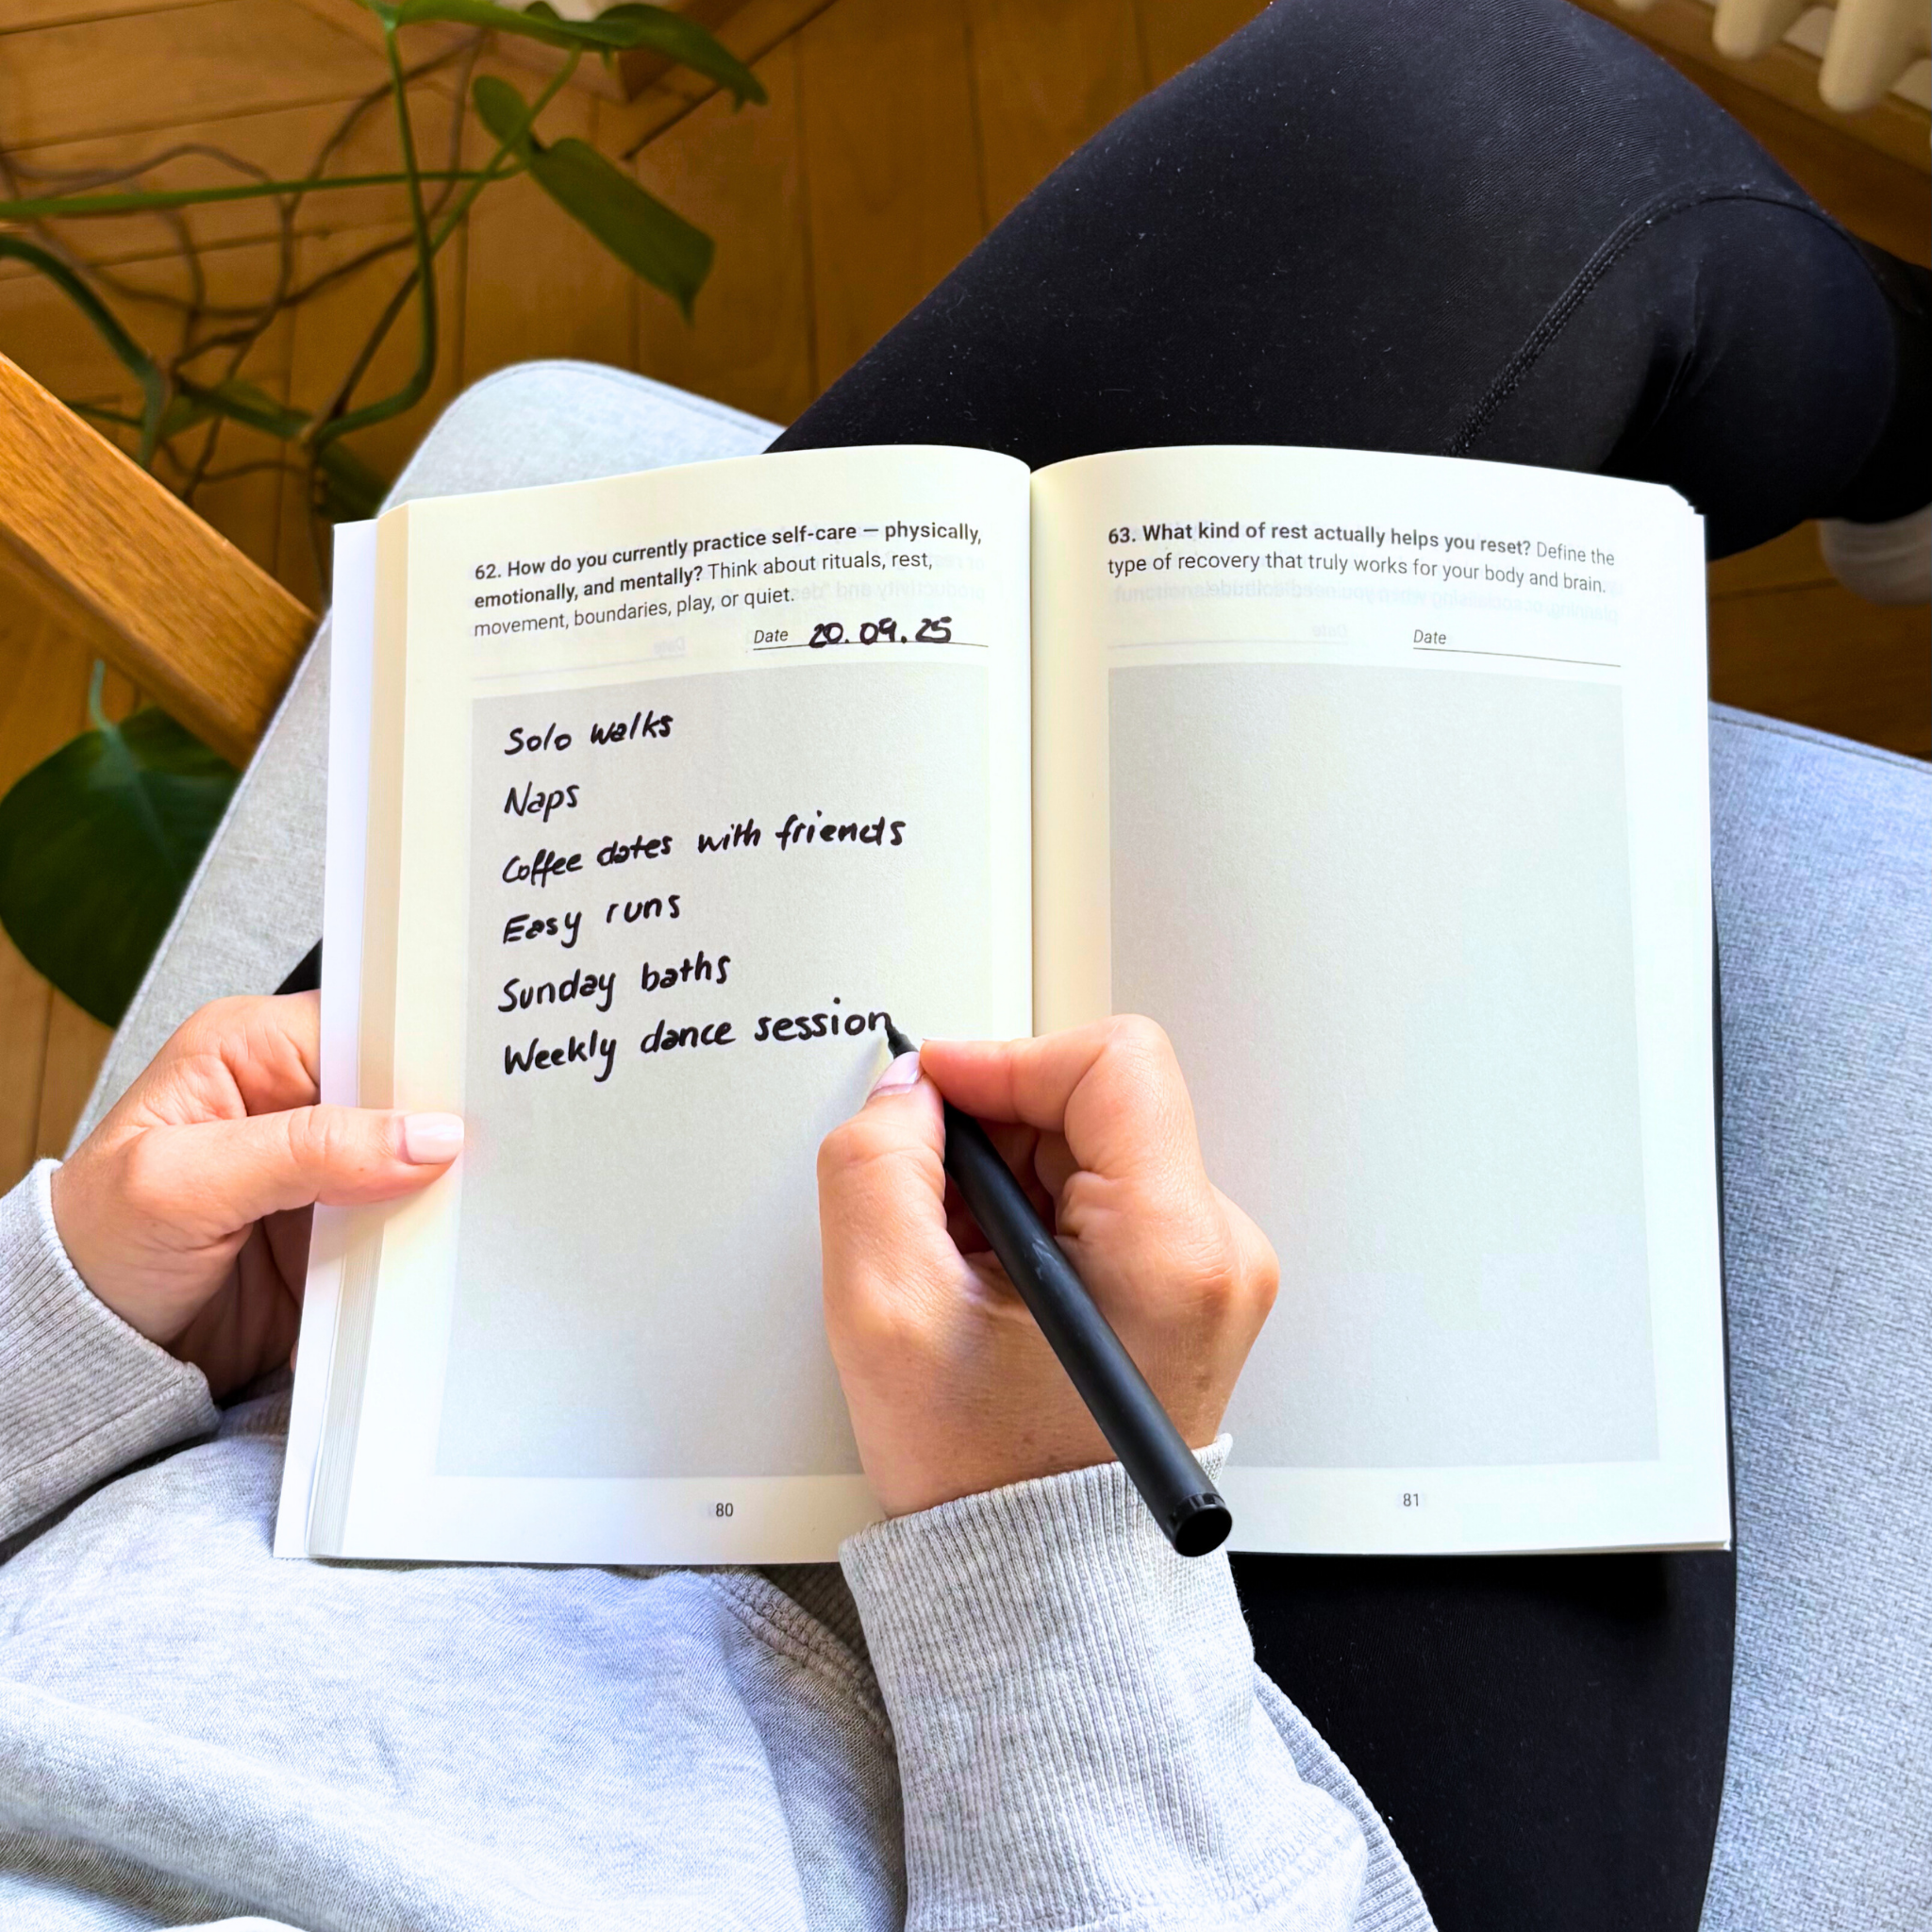 62. How do you currently practice self-care — physically,
emotionally, and mentally? Think about rituals, rest,
movement, boundaries, play, or quiet.
Date 20.09.25
Solo walks
Naps
Coffee dates with friends
Easy runs
Sunday baths
Weekly dance session
80
63. What kind of rest actually helps you reset? Define the
type of recovery that truly works for your body and brain.
Date
81